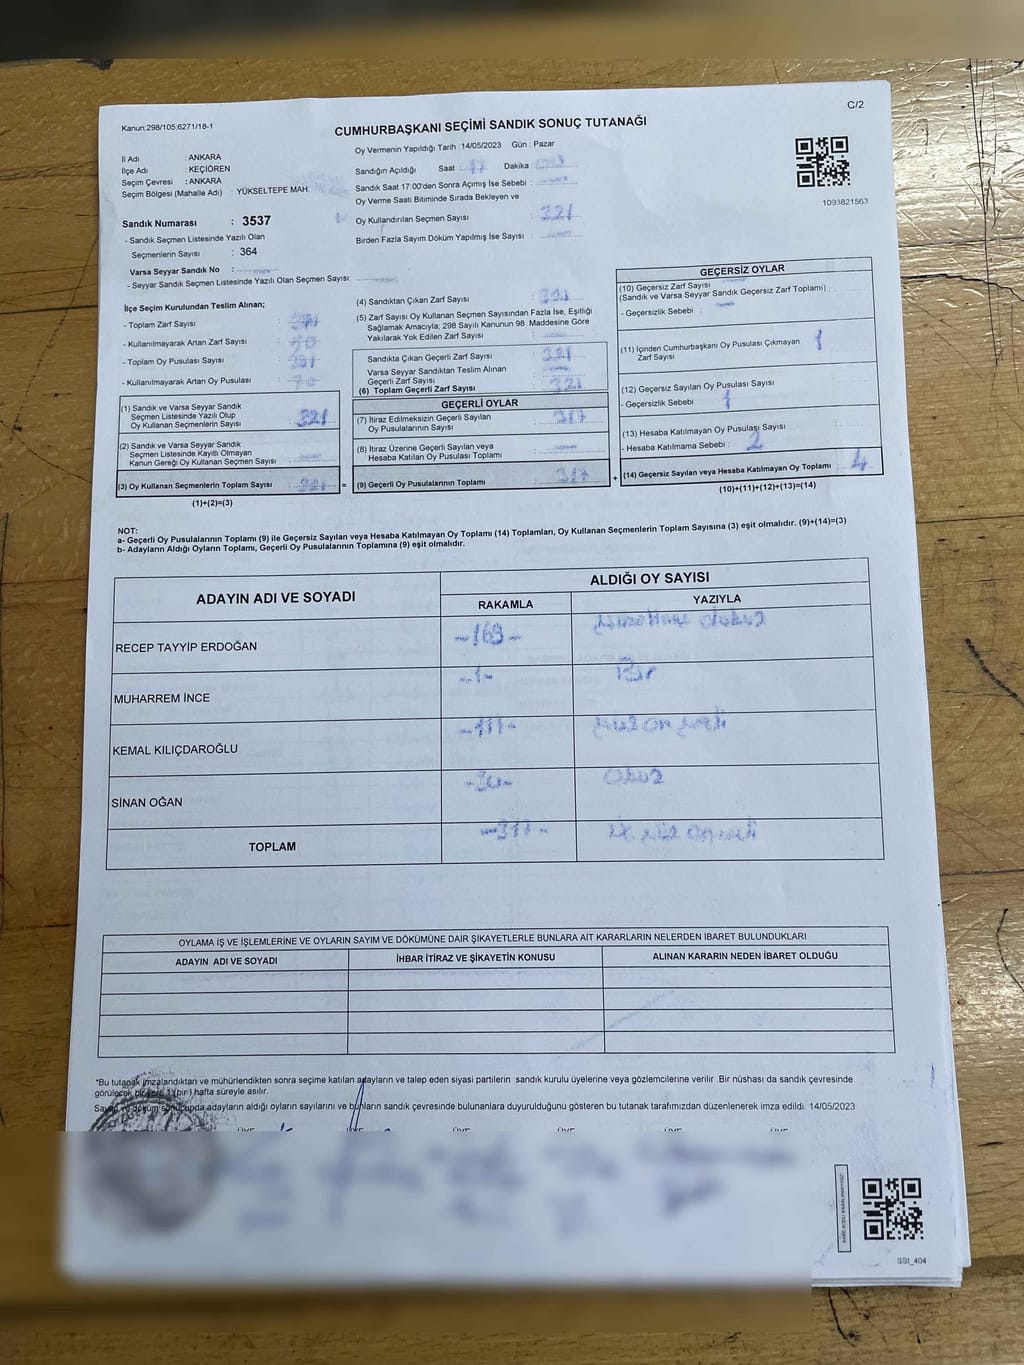 C/2
Kanun:298/105;6271/18-1
CUMHURBAŞKANI SEÇİMİ SANDIK SONUÇ TUTANAĞI
İl Adı : ANKARA
İlçe Adı : KEÇİÖREN
Seçim Çevresi : ANKARA
Seçim Bölgesi (Mahalle Adı) : YÜKSELTEPE MAH.
Sandık Numarası : 3537
- Sandık Seçmen Listesinde Yazılı Olan
Seçmenlerin Sayısı : 364
Varsa Seyyar Sandık No :
- Seyyar Sandık Seçmen Listesinde Yazılı Olan Seçmen Sayısı:
Oy Vermenin Yapıldığı Tarih : 14/05/2023 Gün : Pazar
Sandığın Açıldığı Saat : 17 Dakika :
Sandık Saat 17.00'den Sonra Açımış İse Sebebi :
Oy Verme Saati Bitiminde Sırada Bekleyen ve
Oy Kullandırılan Seçmen Sayısı : 321
Birden Fazla Sayım Döküm Yapılmış İse Sayısı :
1093821563
İlçe Seçim Kurulundan Teslim Alınan;
- Toplam Zarf Sayısı :
- Kullanılmayarak Artan Zarf Sayısı :
- Toplam Oy Pusulası Sayısı :
- Kullanılmayarak Artan Oy Pusulası : 70
(1) Sandık ve Varsa Seyyar Sandık
Seçmen Listesinde Yazılı Olup
Oy Kullanan Seçmenlerin Sayısı : 321
(2) Sandık ve Varsa Seyyar Sandık
Seçmen Listesinde Kayıtlı Olmayan
Kanun Gereği Oy Kullanan Seçmen Sayısı :
(3) Oy Kullanan Seçmenlerin Toplam Sayısı : 321 =
(1)+(2)=(3)
(4) Sandıktan Çıkan Zarf Sayısı : 321
(5) Zarf Sayısı Oy Kullanan Seçmen Sayısından Fazla İse, Eşitliği
Sağlamak Amacıyla; 298 Sayılı Kanunun 98. Maddesine Göre
Yakılarak Yok Edilen Zarf Sayısı :
Sandıkta Çıkan Geçerli Zarf Sayısı : 321
Varsa Seyyar Sandıktan Teslim Alınan
Geçerli Zarf Sayısı :
(6) Toplam Geçerli Zarf Sayısı : 321
GEÇERLİ OYLAR
(7) İtiraz Edilmeksizin Geçerli Sayılan
Oy Pusulalarının Sayısı : 317
(8) İtiraz Üzerine Geçerli Sayılan veya
Hesaba Katılan Oy Pusulası Toplamı :
(9) Geçerli Oy Pusulalarının Toplamı : 317 +
GEÇERSİZ OYLAR
(10) Geçersiz Zarf Sayısı
(Sandık ve Varsa Seyyar Sandık Geçersiz Zarf Toplamı) :
- Geçersizlik Sebebi :
(11) İçinden Cumhurbaşkanı Oy Pusulası Çıkmayan 1
Zarf Sayısı :
(12) Geçersiz Sayılan Oy Pusulası Sayısı :
- Geçersizlik Sebebi : 1
(13) Hesaba Katılmayan Oy Pusulası Sayısı :
- Hesaba Katılmama Sebebi : 2
(14) Geçersiz Sayılan veya Hesaba Katılmayan Oy Toplamı : 4
(10)+(11)+(12)+(13)=(14)
NOT:
a- Geçerli Oy Pusulalarının Toplamı (9) ile Geçersiz Sayılan veya Hesaba Katılmayan Oy Toplamı (14) Toplamları, Oy Kullanan Seçmenlerin Toplam Sayısına (3) eşit olmalıdır. (9)+(14)=(3)
b- Adayların Aldığı Oyların Toplamı, Geçerli Oy Pusulalarının Toplamına (9) eşit olmalıdır.
ADAYIN ADI VE SOYADI ALDIĞI OY SAYISI
RAKAMLA YAZIYLA
RECEP TAYYİP ERDOĞAN -169-
MUHARREM İNCE -1- Bir
KEMAL KILIÇDAROĞLU -117- yüz on yedi
SİNAN OĞAN -30- Otuz
TOPLAM -317- üç yüz onyedi
OYLAMA İŞ VE İŞLEMLERİNE VE OYLARIN SAYIM VE DÖKÜMÜNE DAİR ŞİKAYETLERLE BUNLARA AİT KARARLARIN NELERDEN İBARET BULUNDUKLARI
ADAYIN ADI VE SOYADI İHBAR İTİRAZ VE ŞİKAYETİN KONUSU ALINAN KARARIN NEDEN İBARET OLDUĞU
*Bu tutanak imzalandıktan ve mühürlendikten sonra seçime katılan adayların ve talep eden siyasi partilerin sandık kurulu üyelerine veya gözlemcilerine verilir .Bir nüshası da sandık çevresinde
görülecek bir yere 1 (bir) hafta süreyle asilir.
Sayım ve döküm sonucunda adayların aldığı oyların sayılarını ve bunların sandık çevresinde bulunanlara duyurulduğunu gösteren bu tutanak tarafımızdan düzenlenerek imza edildi. 14/05/2023
ÜYE ÜYE ÜYE ÜYE ÜYE ÜYE
SSI_404